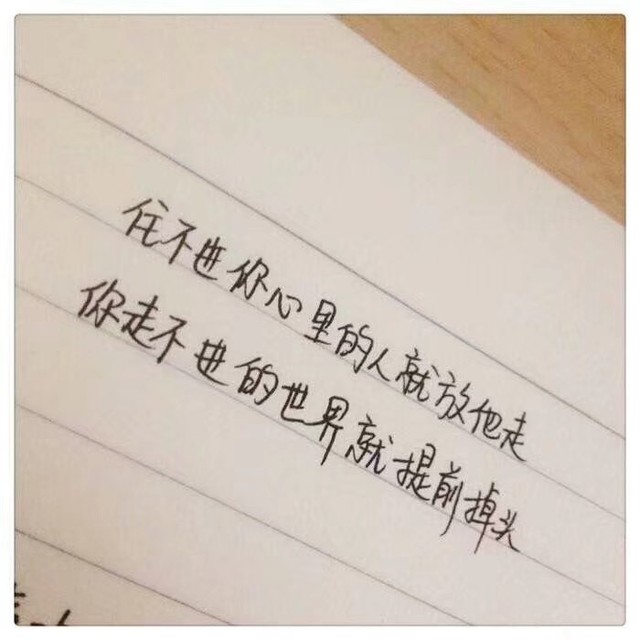 住不进你心里的人就放他走
你走不进的世界就提前掉头